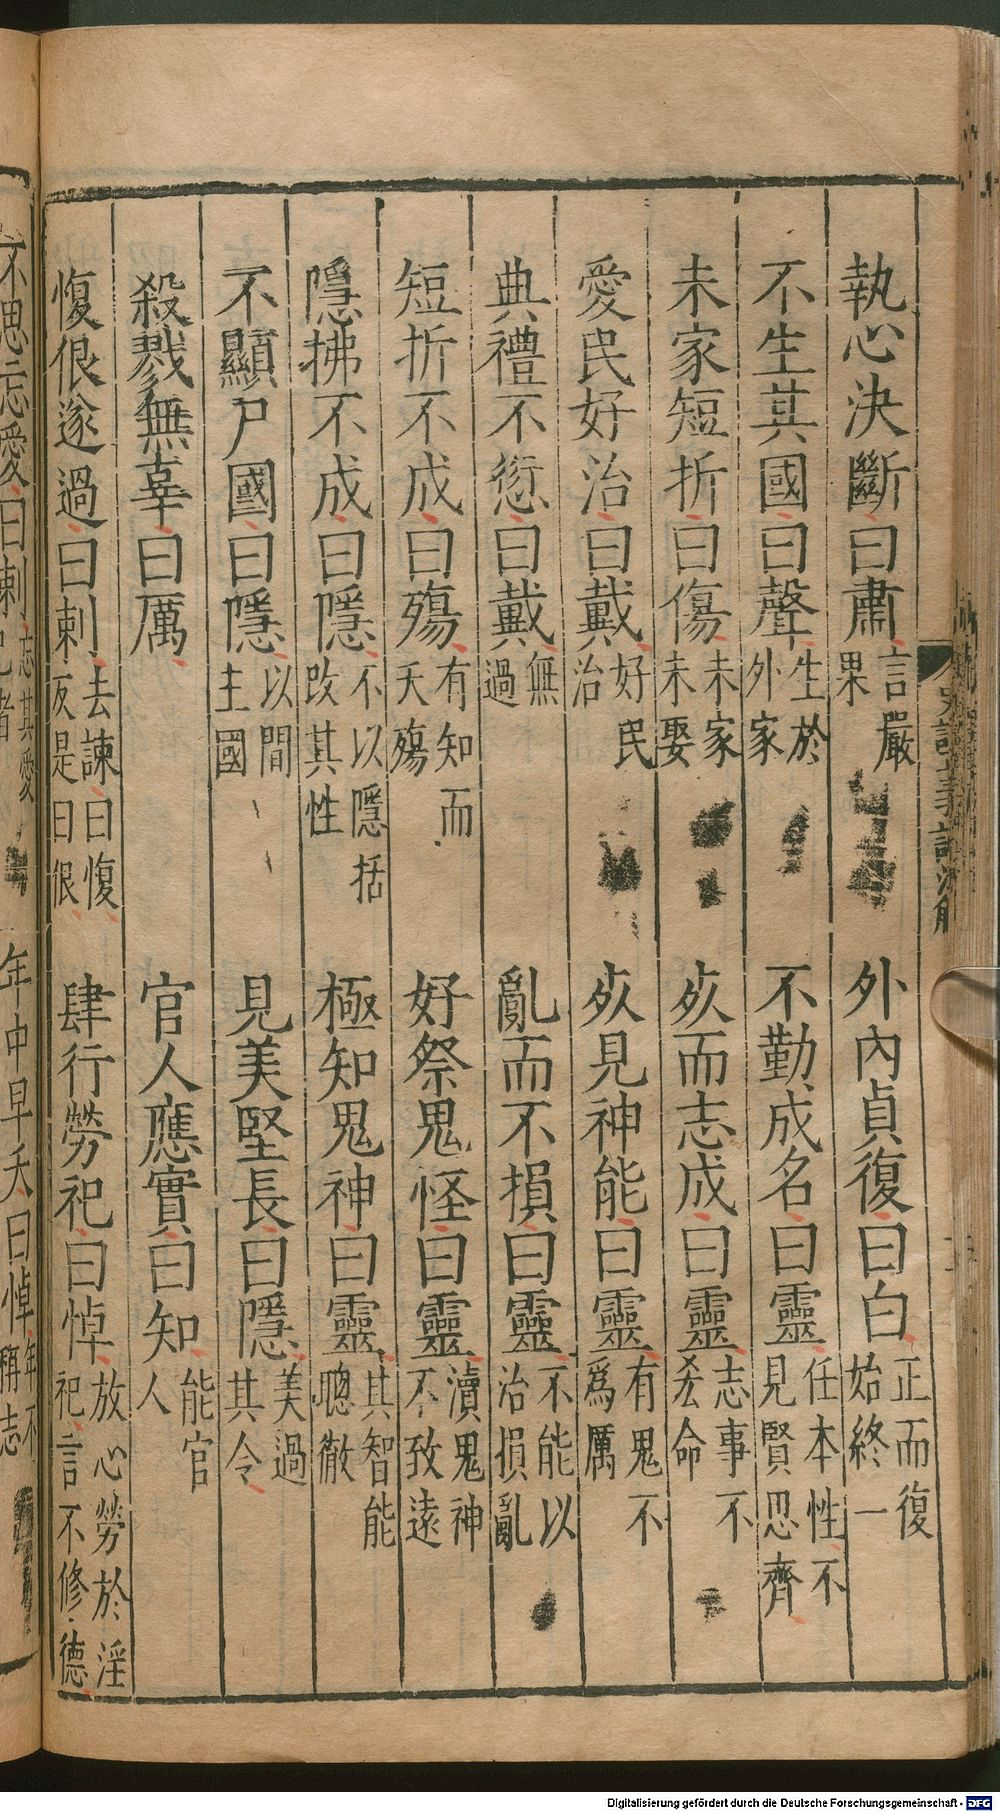 執心決斷曰肅言嚴果
外內貞復曰白正而復始終一
不生其國曰聲生於外家
不勤成名曰靈任本性不見賢思齊
未家短折曰傷未家未娶
死而志成曰靈志事不忝命
愛民好治曰戴好民治
死見神能曰靈有鬼不為厲
典禮不愆曰戴無過
亂而不損曰靈不能以治損亂
短折不成曰殤有知而夭殤
好祭鬼怪曰靈瀆鬼神不致遠
隱拂不成曰隱不以隱括改其性
極知鬼神曰靈其智能聰徹
不顯尸國曰隱以間主國
見美堅長曰隱美過其令
殺戮無辜曰厲
官人應實曰知能官人
愎佷遂過曰刺去諫曰愎反是曰佷
肆行勞祀曰悼放心勞於淫祀言不修德
不思忘愛曰刺忘其愛已者
年中早夭曰悼年不稱志
Digitalisierung gefördert durch die Deutsche Forschungsgemeinschaft - DFG